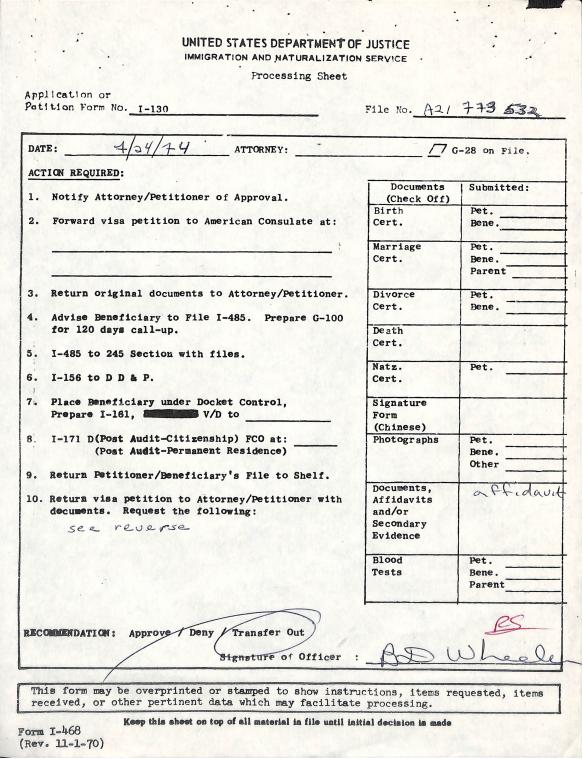 UNITED STATES DEPARTMENT OF JUSTICE
IMMIGRATION AND NATURALIZATION SERVICE
Processing Sheet
Application or
Petition Form No. I-130
File No. A21 773 532
DATE: 4/24/74 ATTORNEY: G-28 on File.
ACTION REQUIRED:
1. Notify Attorney/Petitioner of Approval.
2. Forward visa petition to American Consulate at:
3. Return original documents to Attorney/Petitioner.
4. Advise Beneficiary to File I-485. Prepare G-100
for 120 days call-up.
5. I-485 to 245 Section with files.
6. I-156 to D D & P.
7. Place Beneficiary under Docket Control,
Prepare I-161, V/D to
8. I-171 D(Post Audit-Citizenship) FCO at:
(Post Audit-Permanent Residence)
9. Return Petitioner/Beneficiary's File to Shelf.
10. Return visa petition to Attorney/Petitioner with
documents. Request the following:
see reverse
Documents Submitted:
(Check Off)
Birth Pet.
Cert. Bene.
Marriage Pet.
Cert. Bene.
Parent
Divorce Pet.
Cert. Bene.
Death
Cert.
Natz. Pet.
Cert.
Signature
Form
(Chinese)
Photographs Pet.
Bene.
Other
Documents, affidavit
Affidavits
and/or
Secondary
Evidence
Blood Pet.
Tests Bene.
Parent
RS
RECOMMENDATION: Approve / Deny / Transfer Out
Signature of Officer : Bob Wheeler
This form may be overprinted or stamped to show instructions, items requested, items
received, or other pertinent data which may facilitate processing.
Keep this sheet on top of all material in file until initial decision is made
Form I-468
(Rev. 11-1-70)